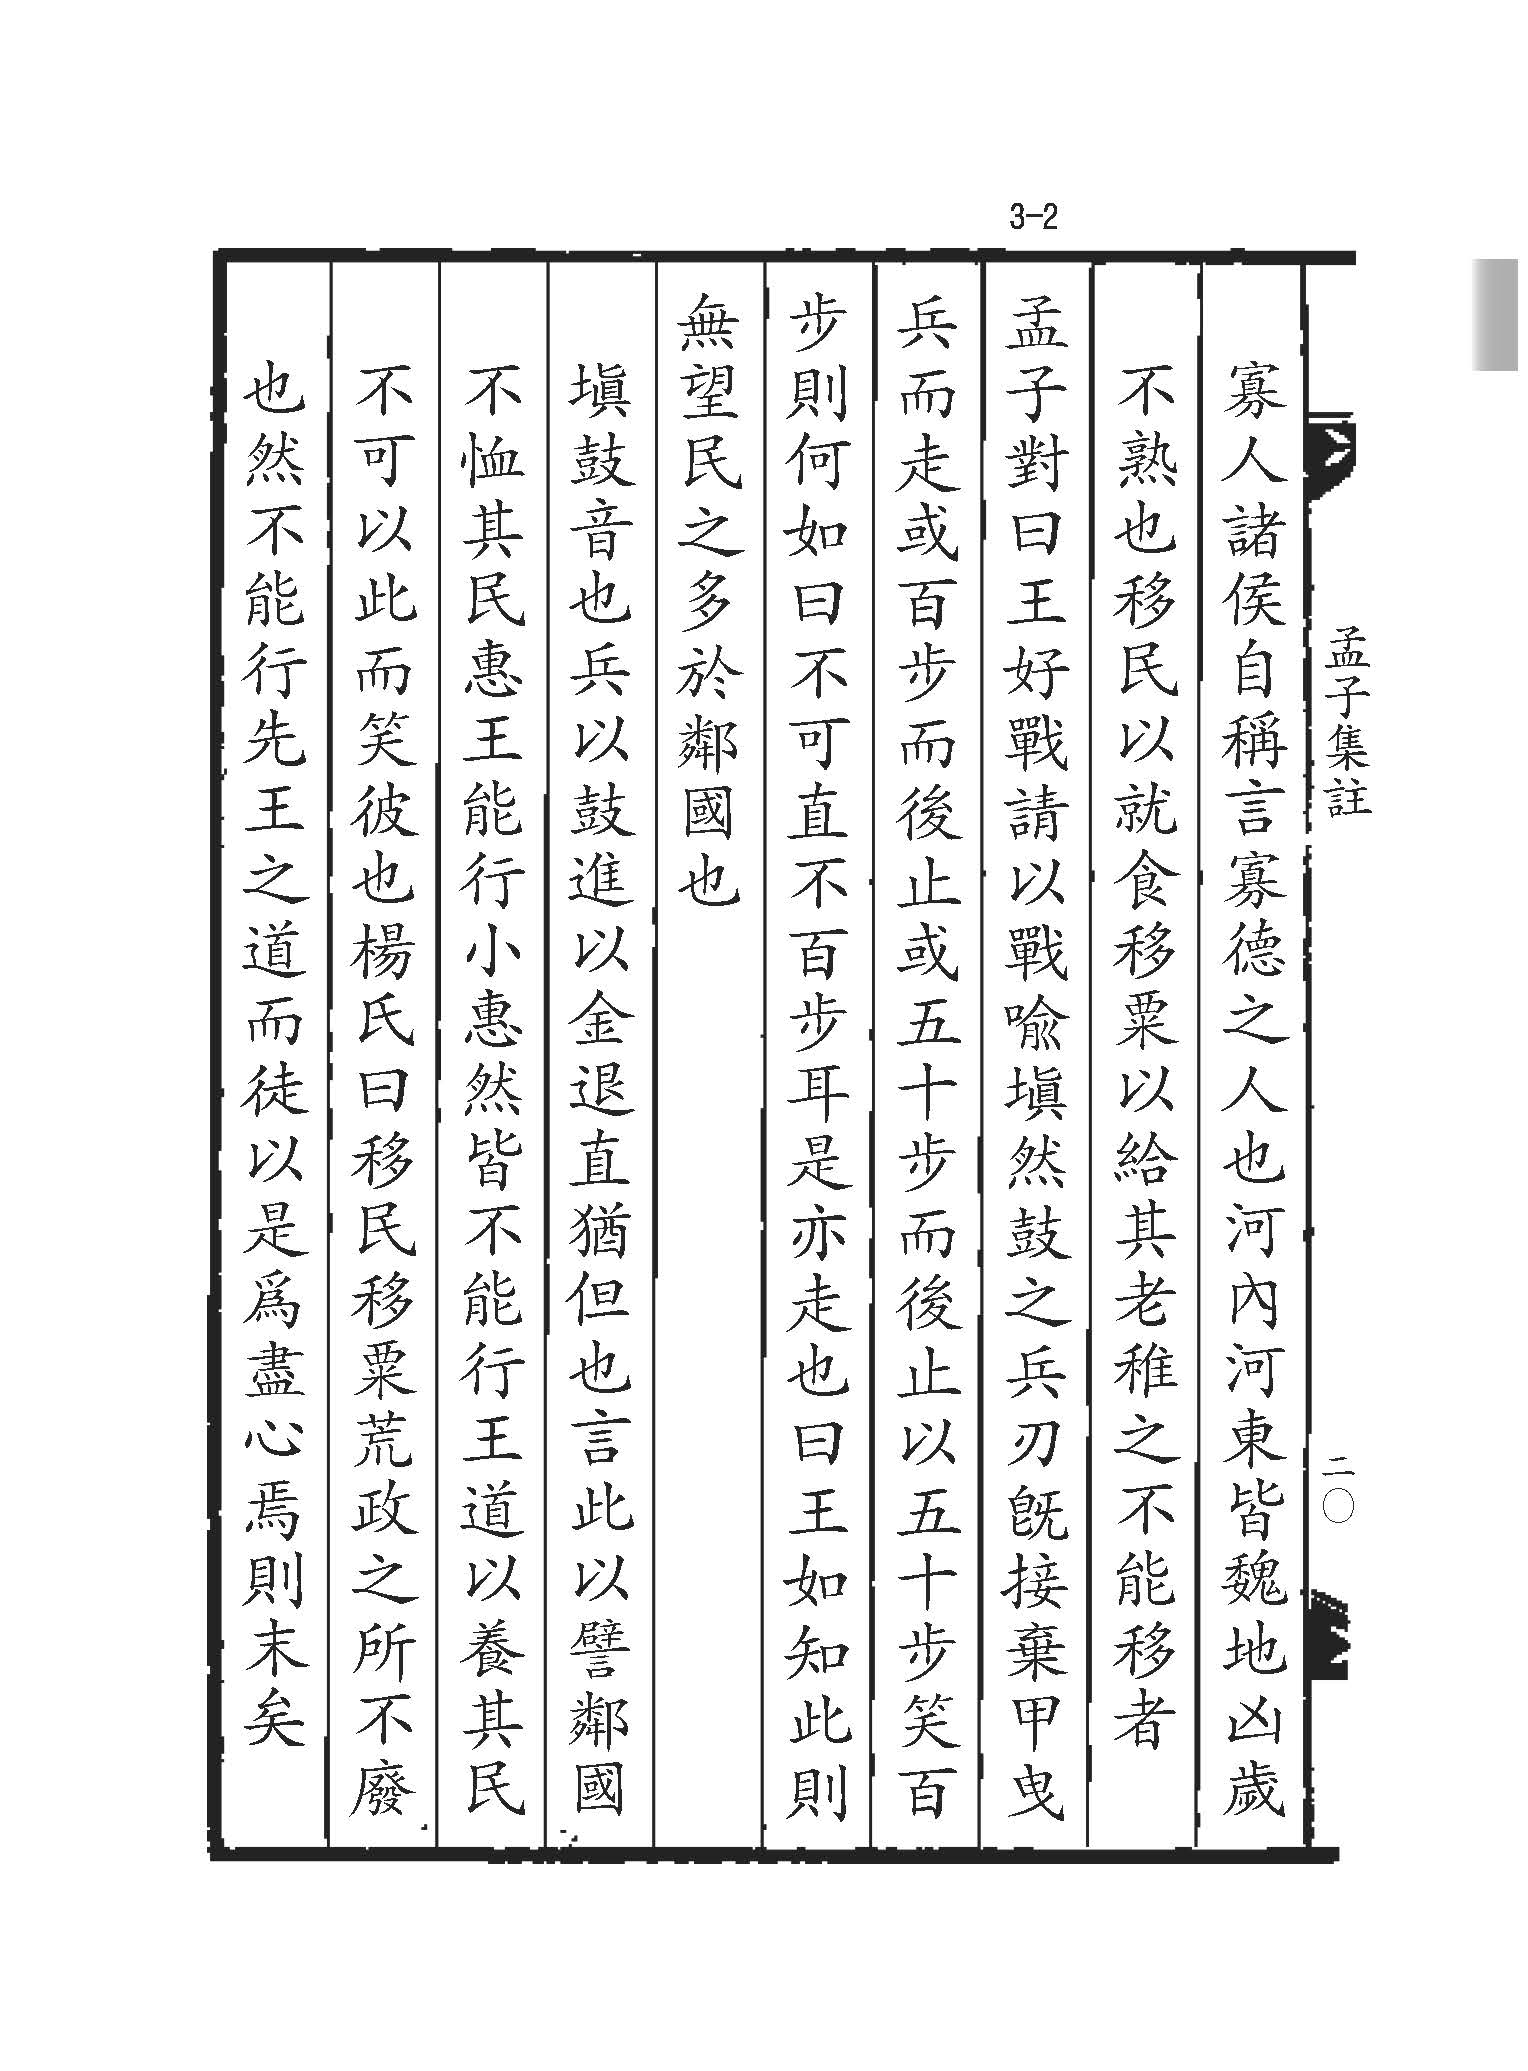 3-2
孟子集註
二〇
寡人諸侯自稱言寡德之人也河內河東皆魏地凶歲
不熟也移民以就食移粟以給其老稚之不能移者
孟子對曰王好戰請以戰喩塡然鼓之兵刃旣接棄甲曳
兵而走或百步而後止或五十步而後止以五十步笑百
步則何如曰不可直不百步耳是亦走也曰王如知此則
無望民之多於鄰國也
塡鼓音也兵以鼓進以金退直猶但也言此以譬鄰國
不恤其民惠王能行小惠然皆不能行王道以養其民
不可以此而笑彼也楊氏曰移民移粟荒政之所不廢
也然不能行先王之道而徒以是爲盡心焉則末矣